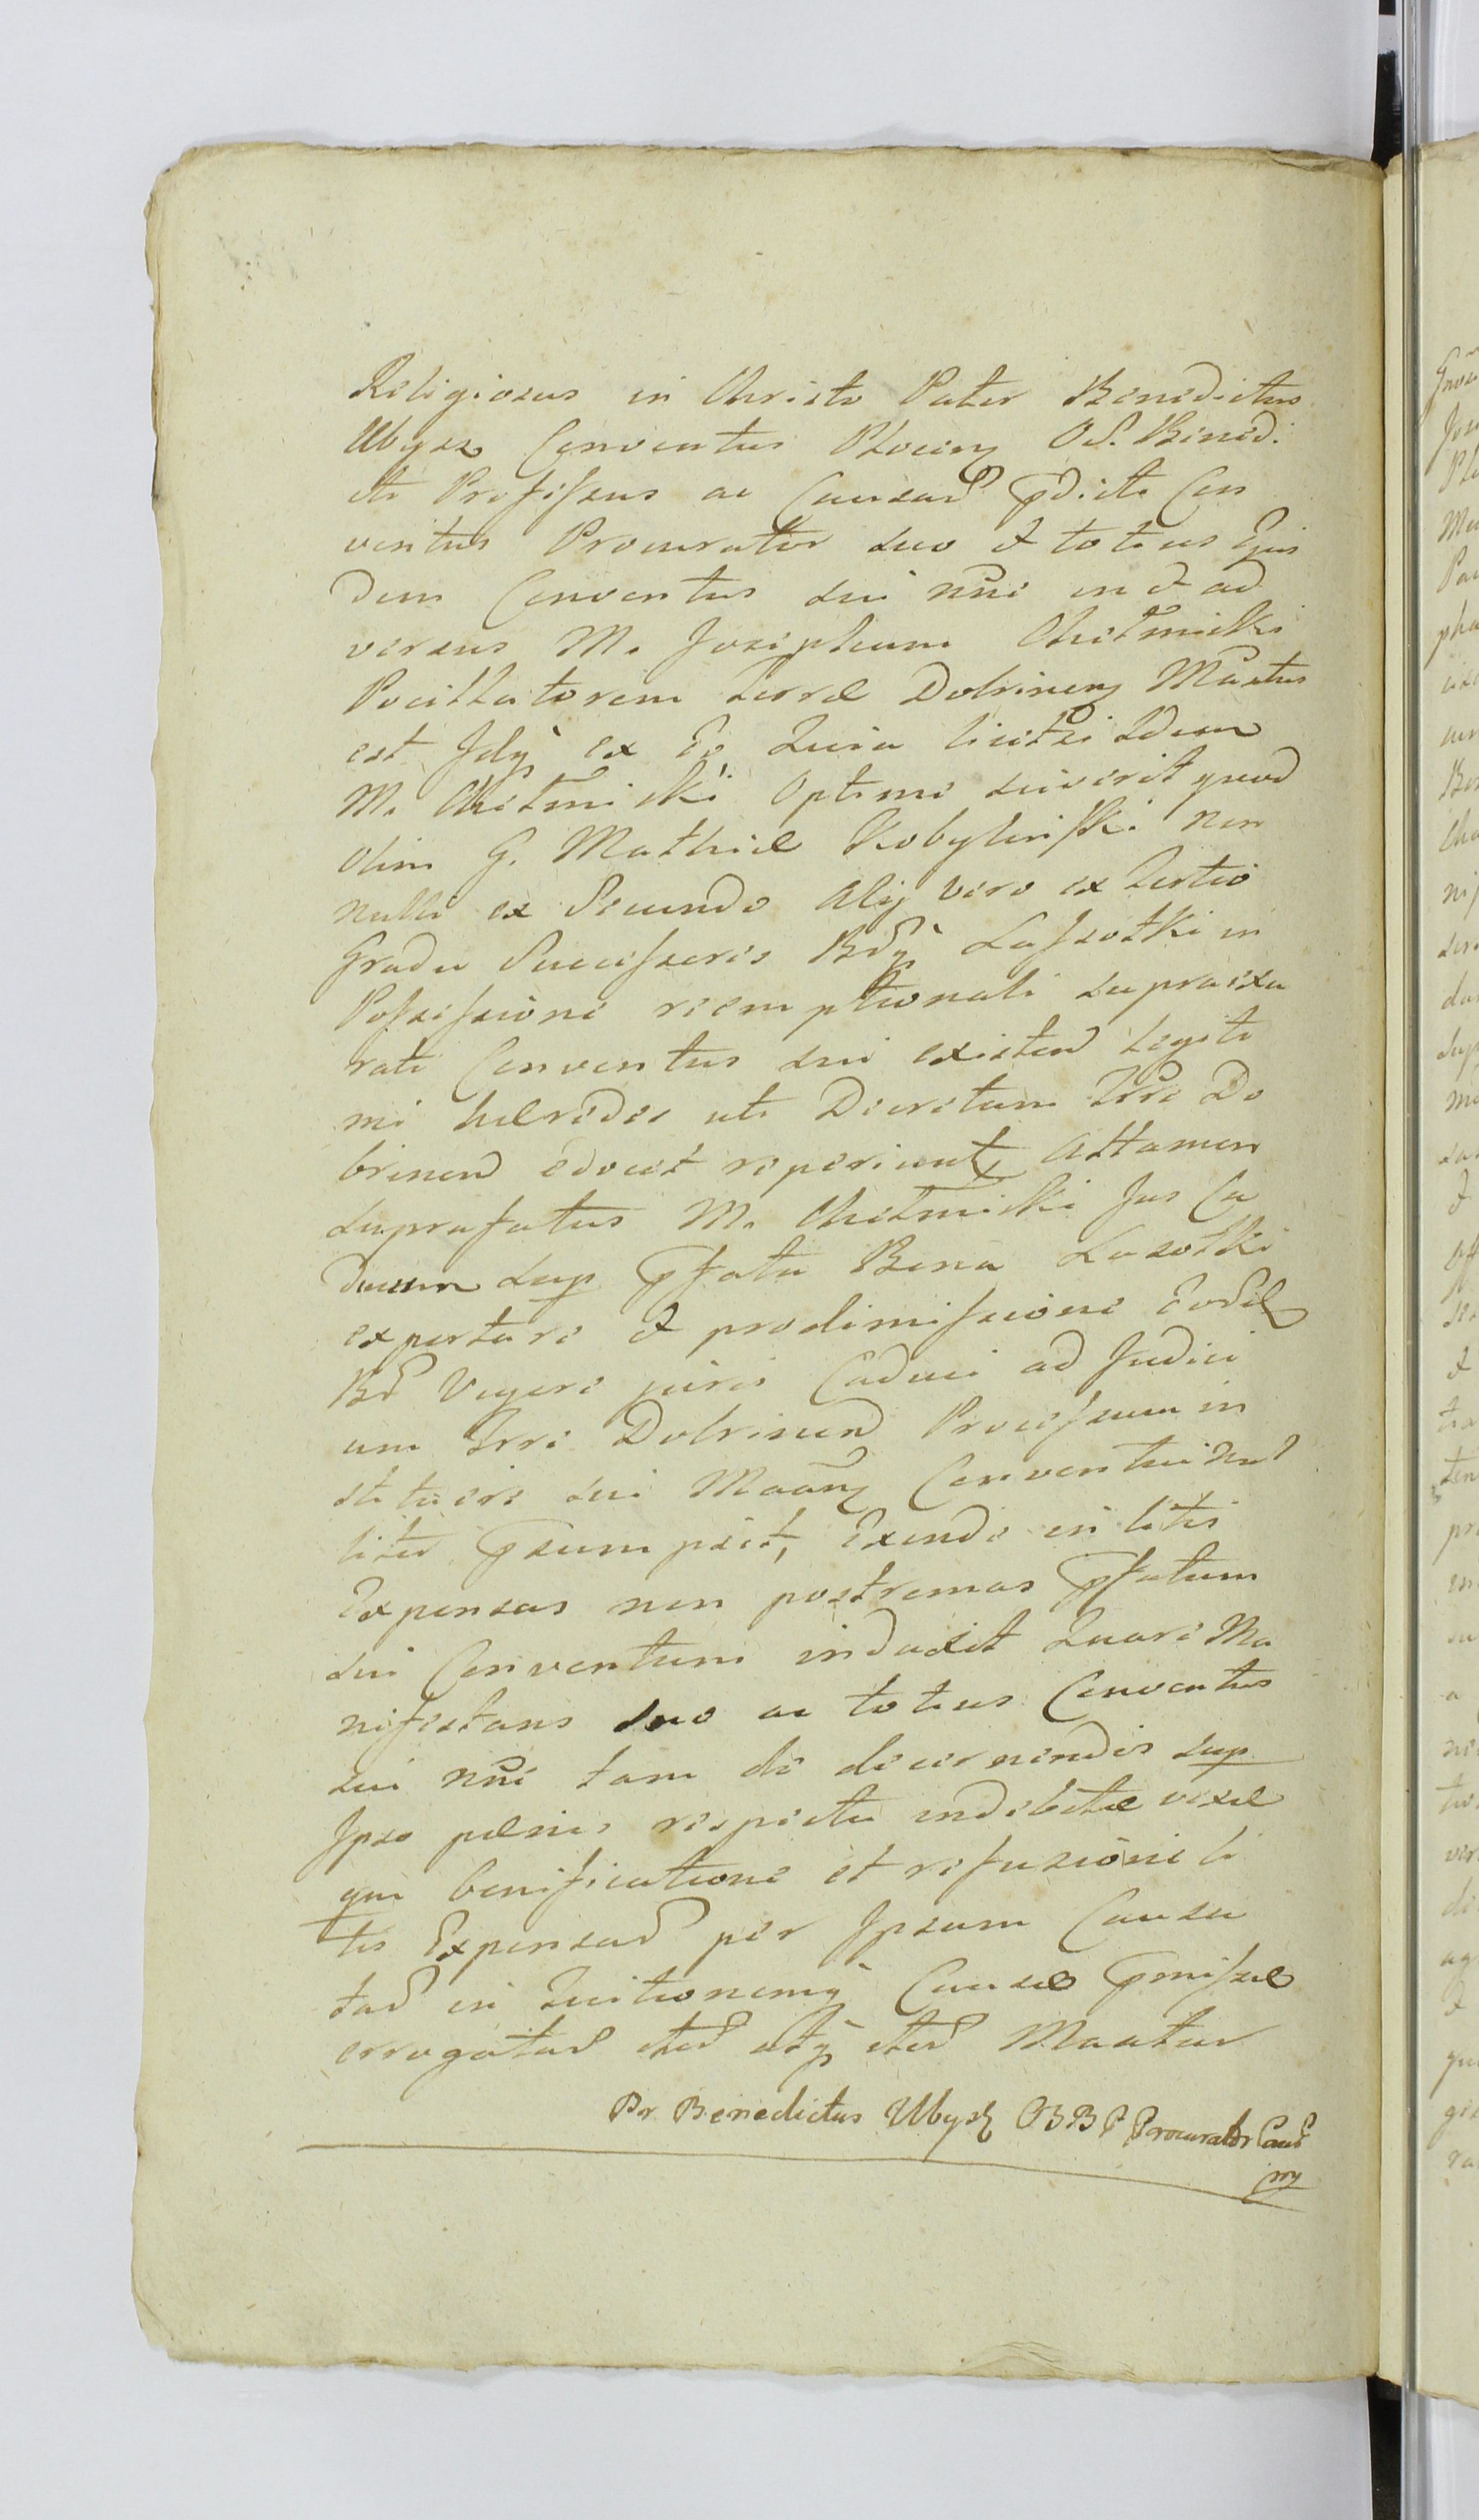 Religiosus in Christo Pater Benedictus
Ubysz Conventus Plocen O S. Benedi
cti Professus ac Causar pdicti Con
ventus Procurator suo et totius Ejus
dem Conventus sui nne in et ad
versus M. Josephum Chełmicki
Pocillatorem Terræ Dobrinen Mastus
est Idq ex Eo Quia licet Idem
M. Chełmicki Optime sciverit quod
Olim G. Mathiæ Kobyliński non
nulli ex Secundo Alij vero ex Tertio
Gradu Successores Bdq Lassotki in
Possessione reemptionali supraexa
rati Conventus sui existen legiti
mi hæredes uti Decretum Trre Do
brinen edocet reperiunt, Attamen
Suprafatus M. Chełmicki Jus Ca
ducum sup pfata Bona Lasotki
exportare et prodimissione Eord
Bd Vigore juris Caduci ad Judici
um Trre Dobrinen Processum in
stituere sui Conventui
psumpsit, Exinde in litis
Expensas non postremas pfatum
sui Conventum induxit Quare Ma
nifestans suo ac totius Conventus
sui nne tam de decernendis sup
Ipso pænis respectu indebitæ vexæ
qm bonificatione et refusione li
tis Expensar per Ipsum Causa
tar in Causæ pmissæ
errogatar iter atq iter Maatur
Pr Benedictus Ubysz OSB P Procurator Caus
mp